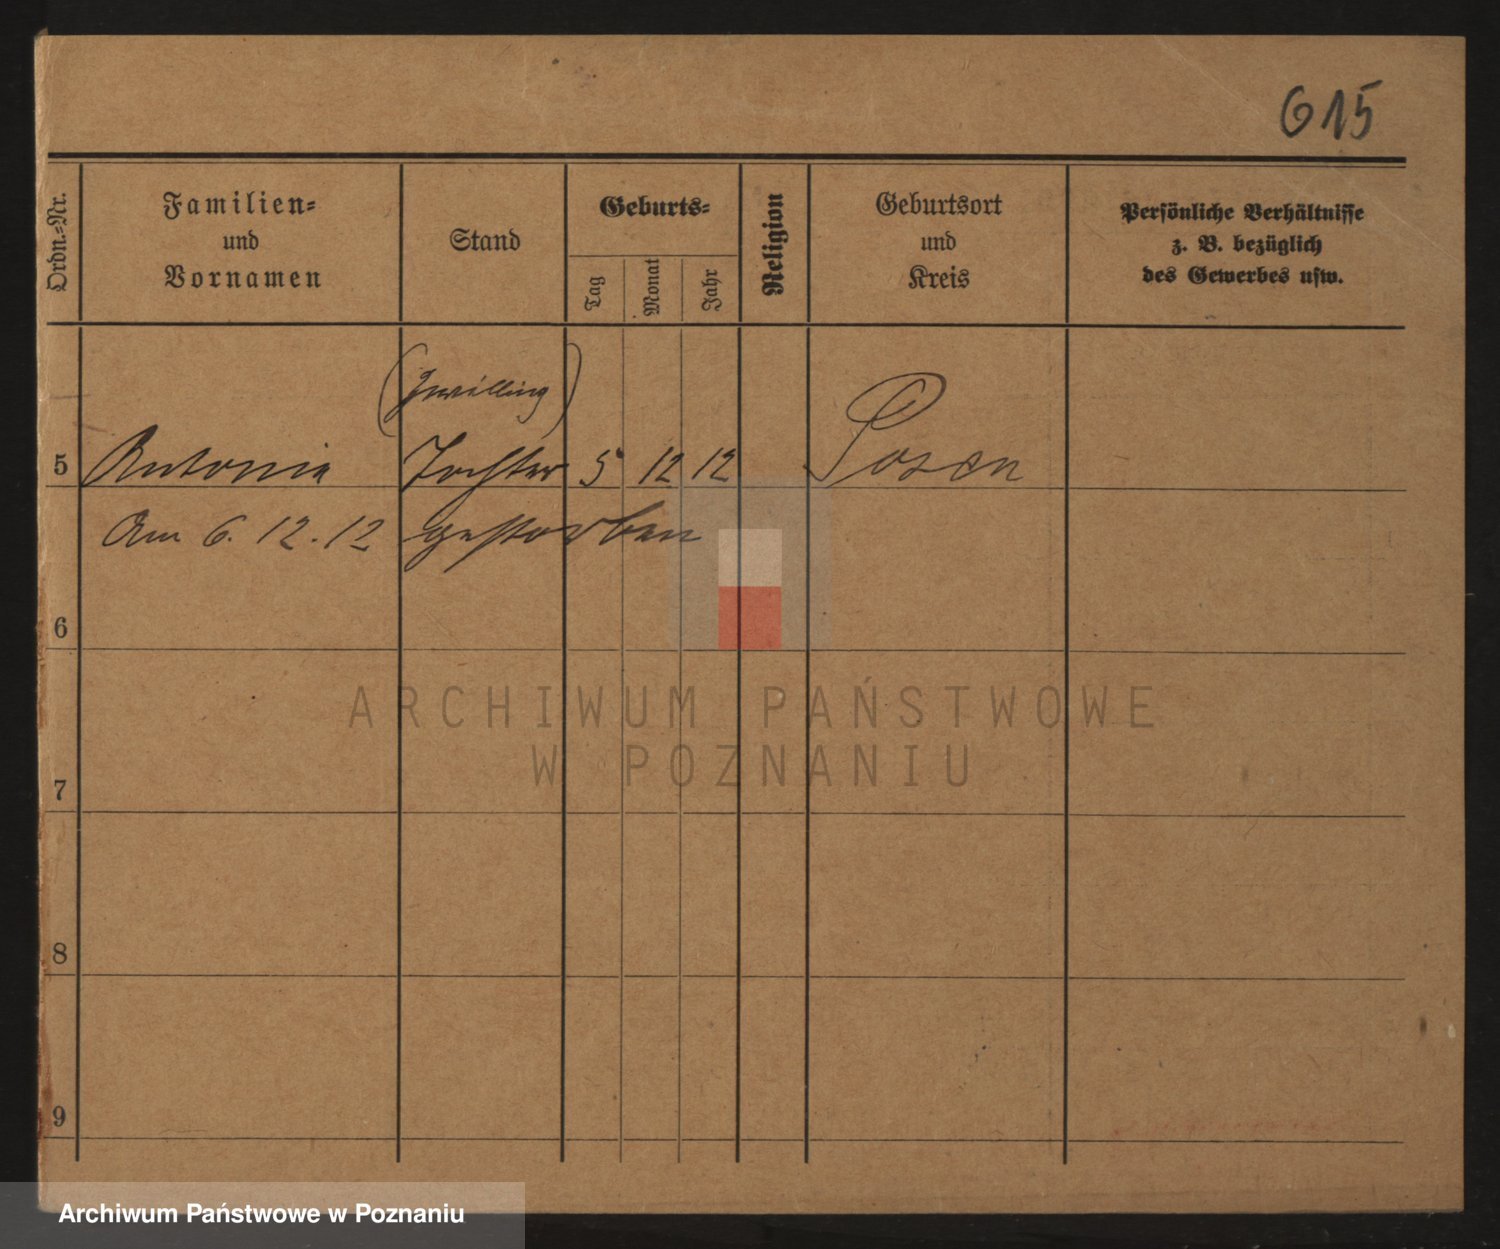 615
Ordn.-Nr.
Familien-
und
Vornamen
Stand
Geburts-
Tag
Monat
Jahr
Religion
Geburtsort
und
Kreis
Persönliche Verhältnisse
z. B. bezüglich
des Gewerbes usw.
(Zwilling)
5 Antonie Tochter 5 12 12 Posen
Am 6. 12. 12 gestorben
6
7
8
9
ARCHIWUM PAŃSTWOWE
W POZNANIU
Archiwum Państwowe w Poznaniu